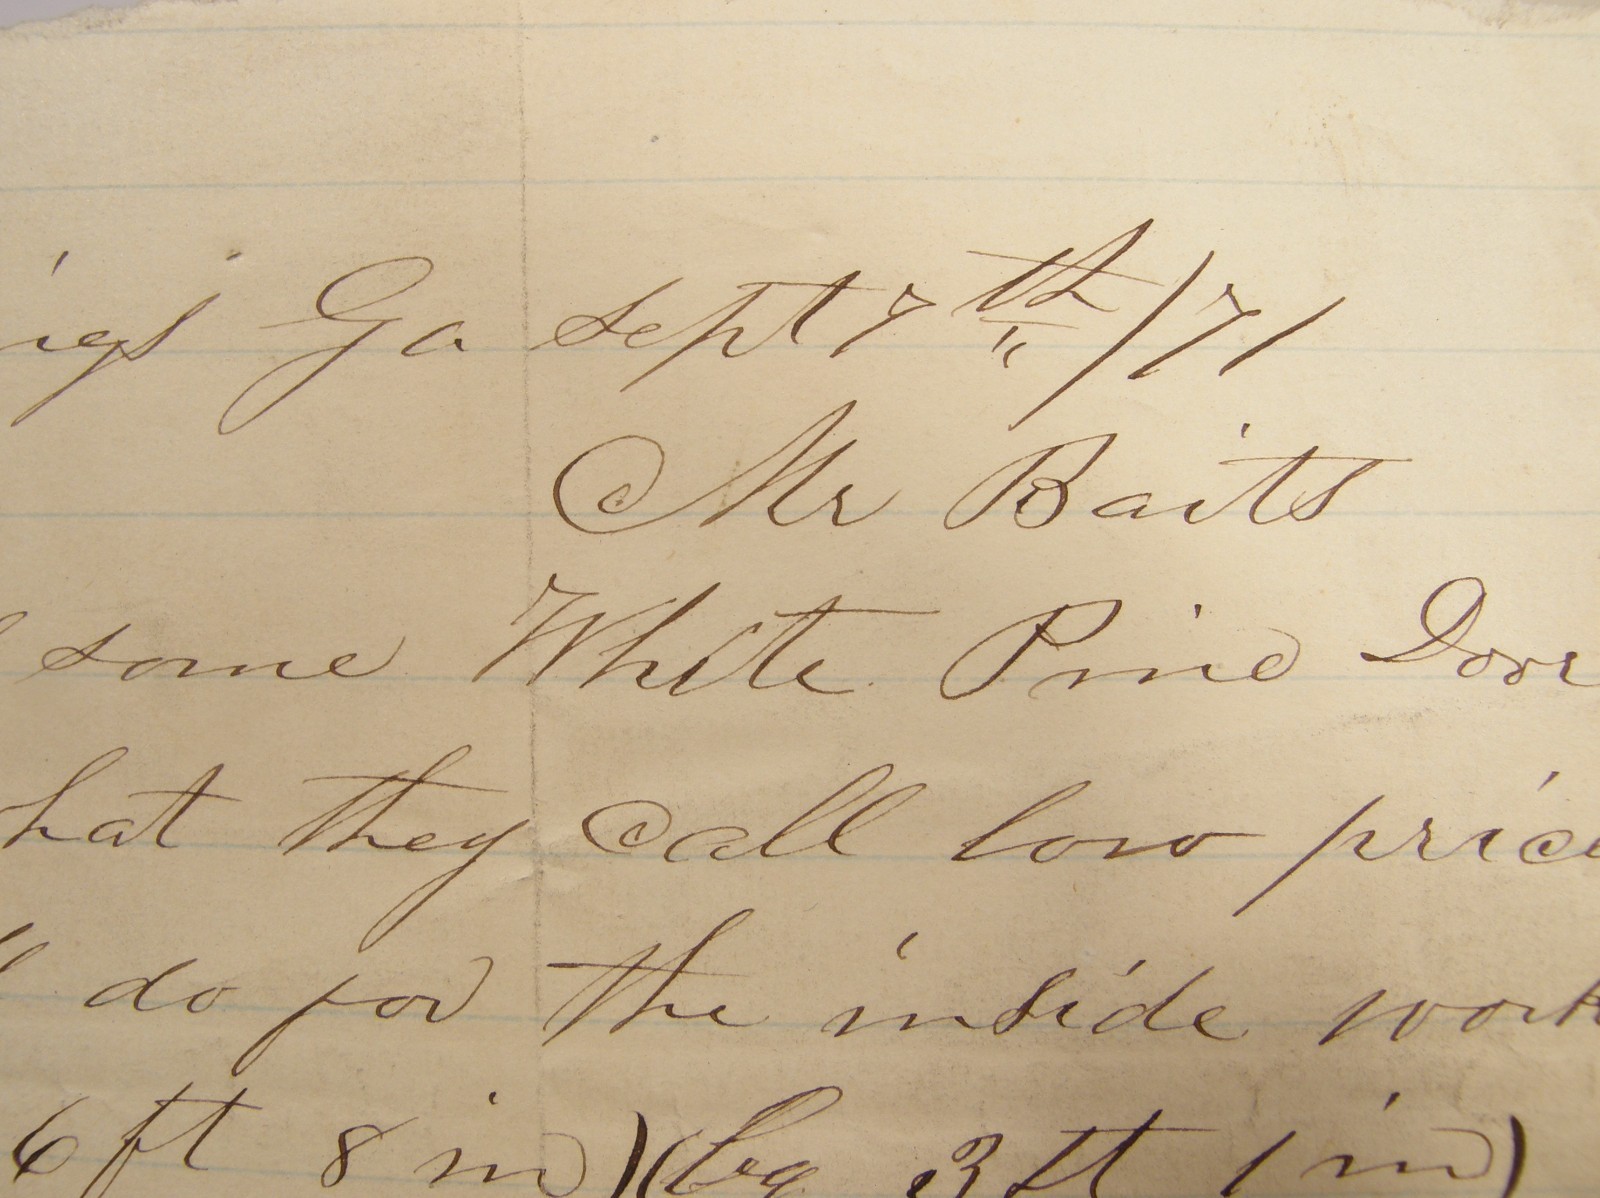 ings Ga sept 7th /71
Mr Baits
some White Pine Door
hat they call low price
do for the inside work
6 ft 8 in) (by 3 ft 1 in)